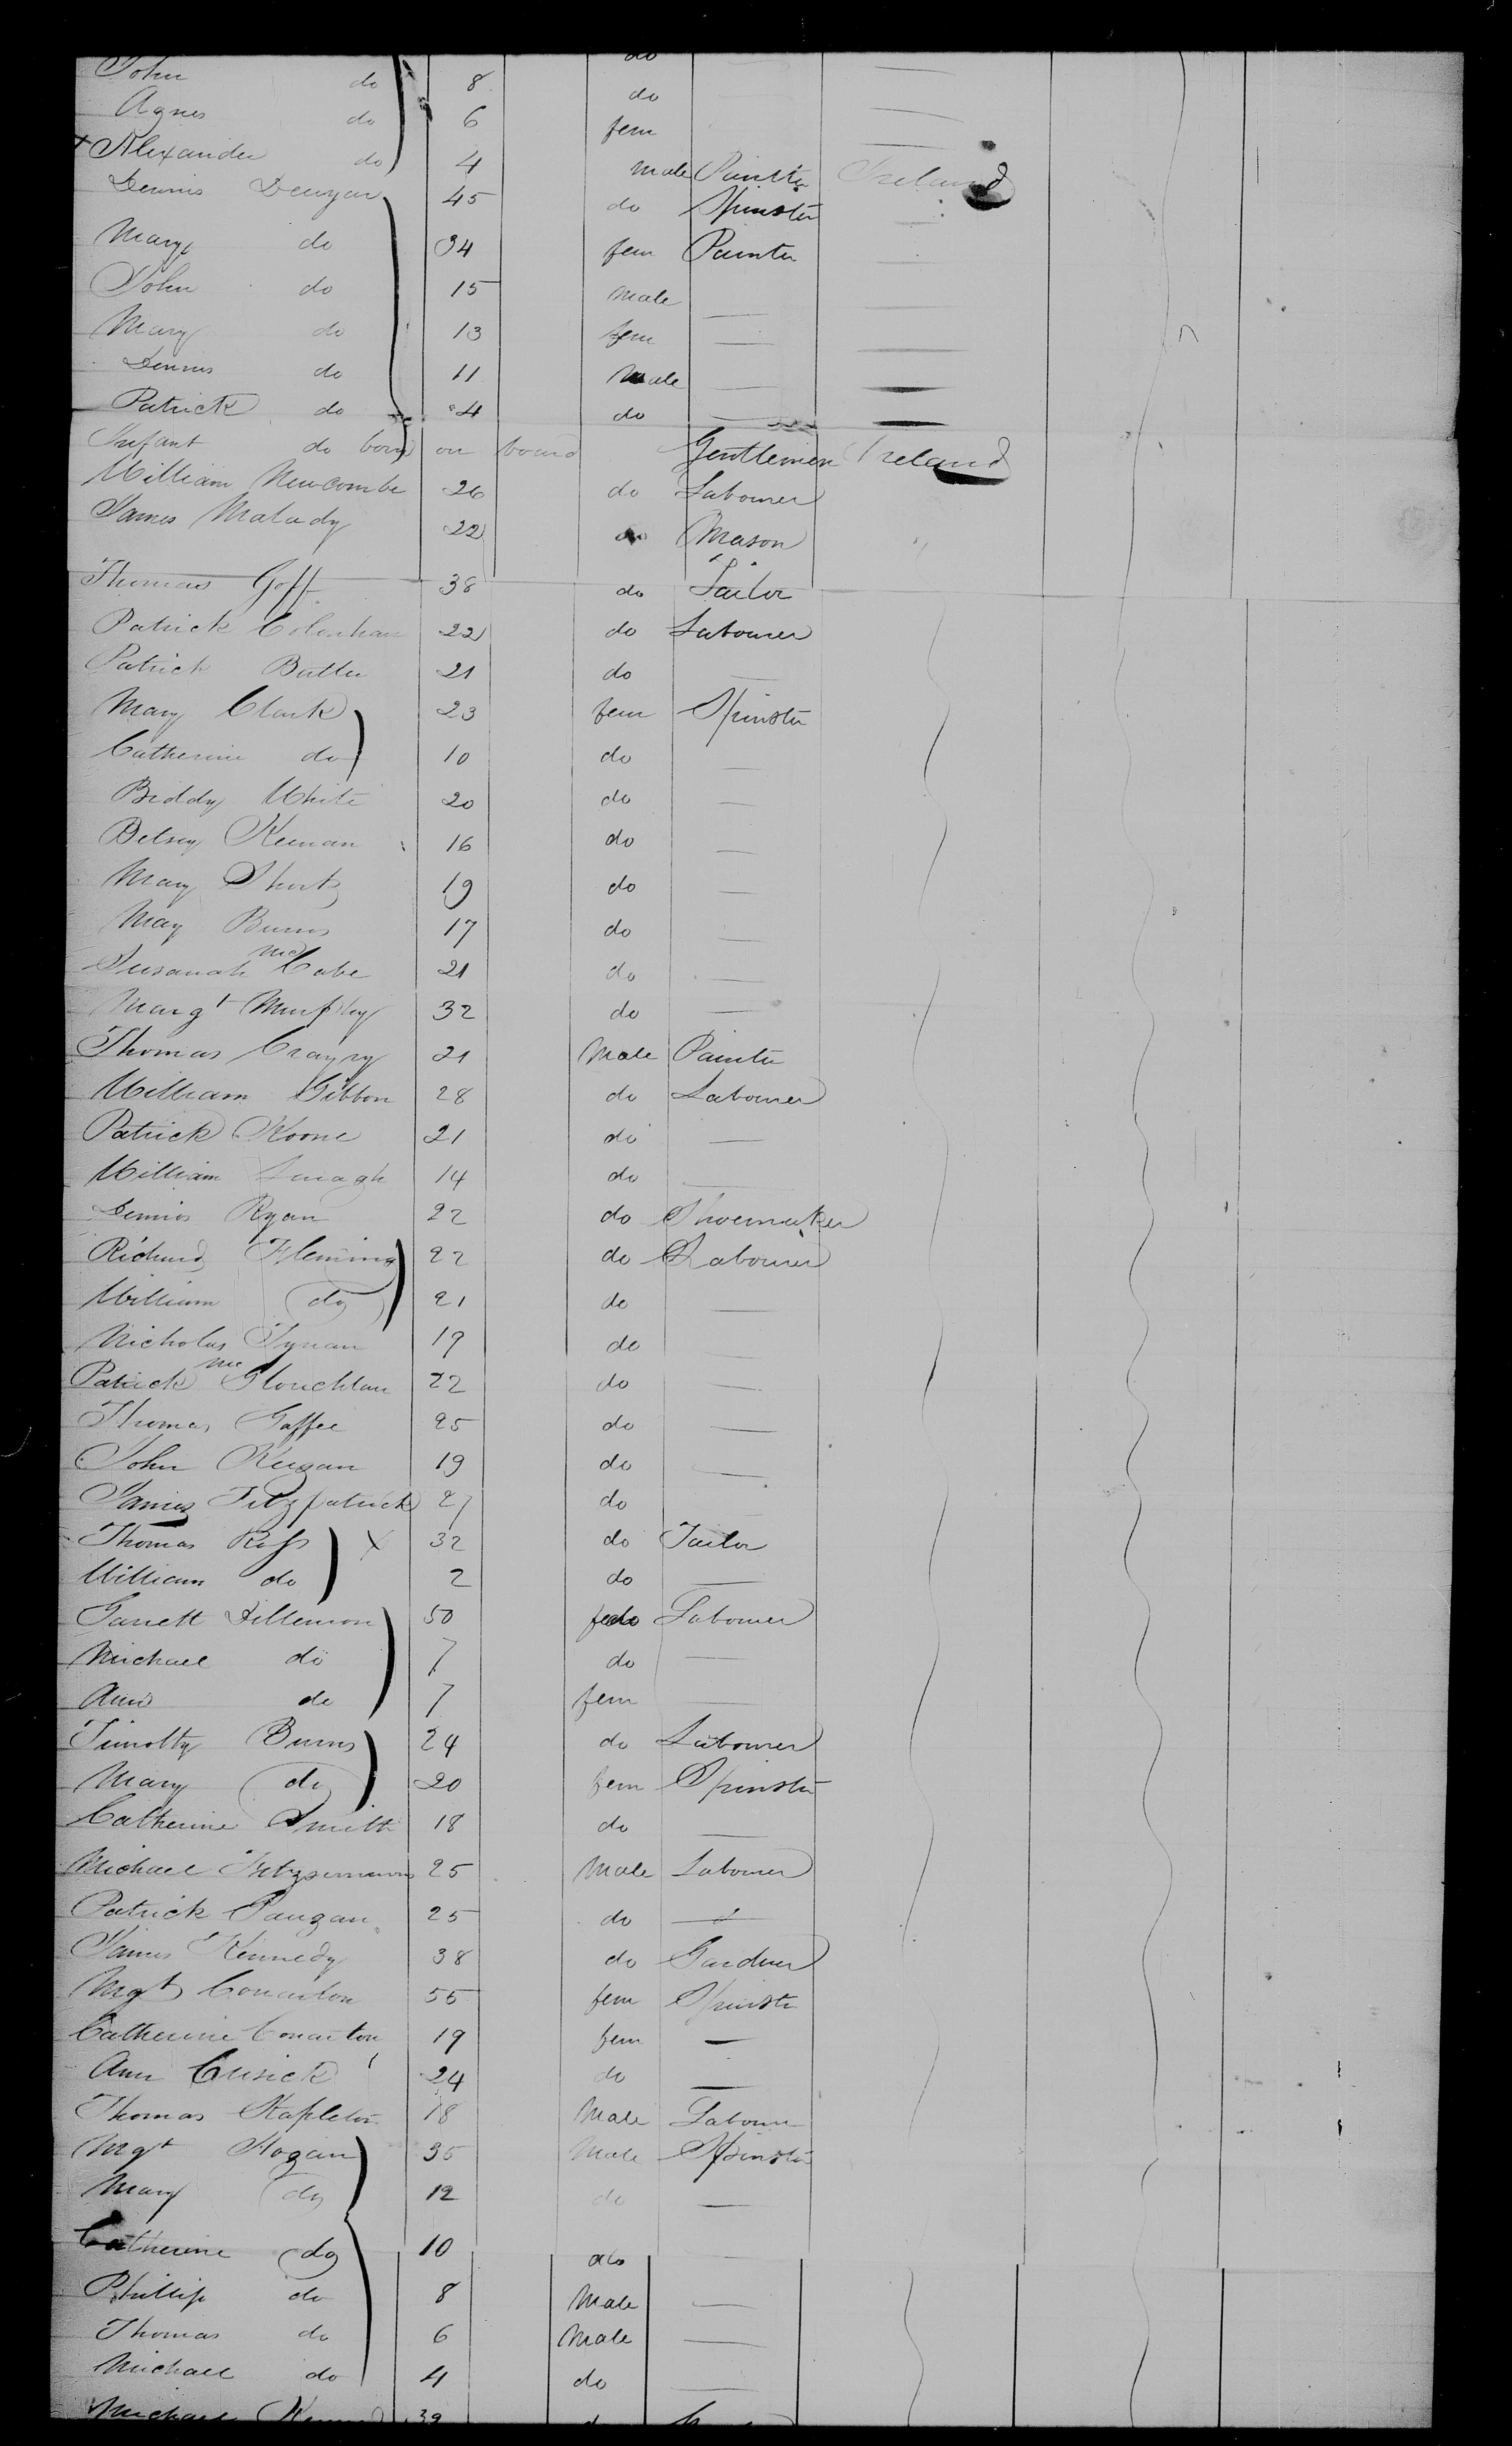 John do 8 do
Agnes do 6 fem
Alexander do 4 male Painter Ireland
Dennis 45 do Spinster
Mary do 34 fem Painter
John do 15 male
Mary do 13 fem
Dennis do 11 Male
Patrick do 4 do
Infant do born on board Gentlemen Ireland
William Newcombe 26 do Labourer
James Malady 22 do Mason
Thomas Goff 38 do Tailor
Patrick 22 do Labourer
Patrick Butler 21 do
Mary Clark 23 fem Spinster
Catherine do 10 do
Biddy White 20 do
Betsey Keenan 16 do
Mary 19 do
Mary Burns 17 do
Susanah McCabe 21 do
Margt Murphy 32 do
Thomas 21 Male Painter
William Gibbon 28 do Labourer
Patrick Koone 21 do
William 14 do
Dennis Ryan 22 do Shoemaker
Richard Fleming 22 do Labourer
William do 21 do
Nicholas Tynan 19 do
Patrick Mc 22 do
Thomas Gaffee 25 do
John Keegan 19 do
James Fitzpatrick 27 do
Thomas Ross X 32 do Tailor
William do 2 do
Garrett 50 do Labourer
Michael do 7 do
Ann do 7 fem
Timothy Burns 24 do Labourer
Mary do 20 fem Spinster
Catherine Smith 18 do
Michael Fitzsimmons 25 Male Labourer
Patrick 25 do
James Kennedy 38 do Gardner
Mgt 55 fem Spinster
Catherine 19 fem
Ann Cusick 24 do
Thomas Stapleton 18 Male Labourer
Mgt Hogan 35 Male Spinster
Mary do 12 do
Catherine do 10 do
Phillip do 8 Male
Thomas do 6 Male
Michael do 4 do
Michael 39